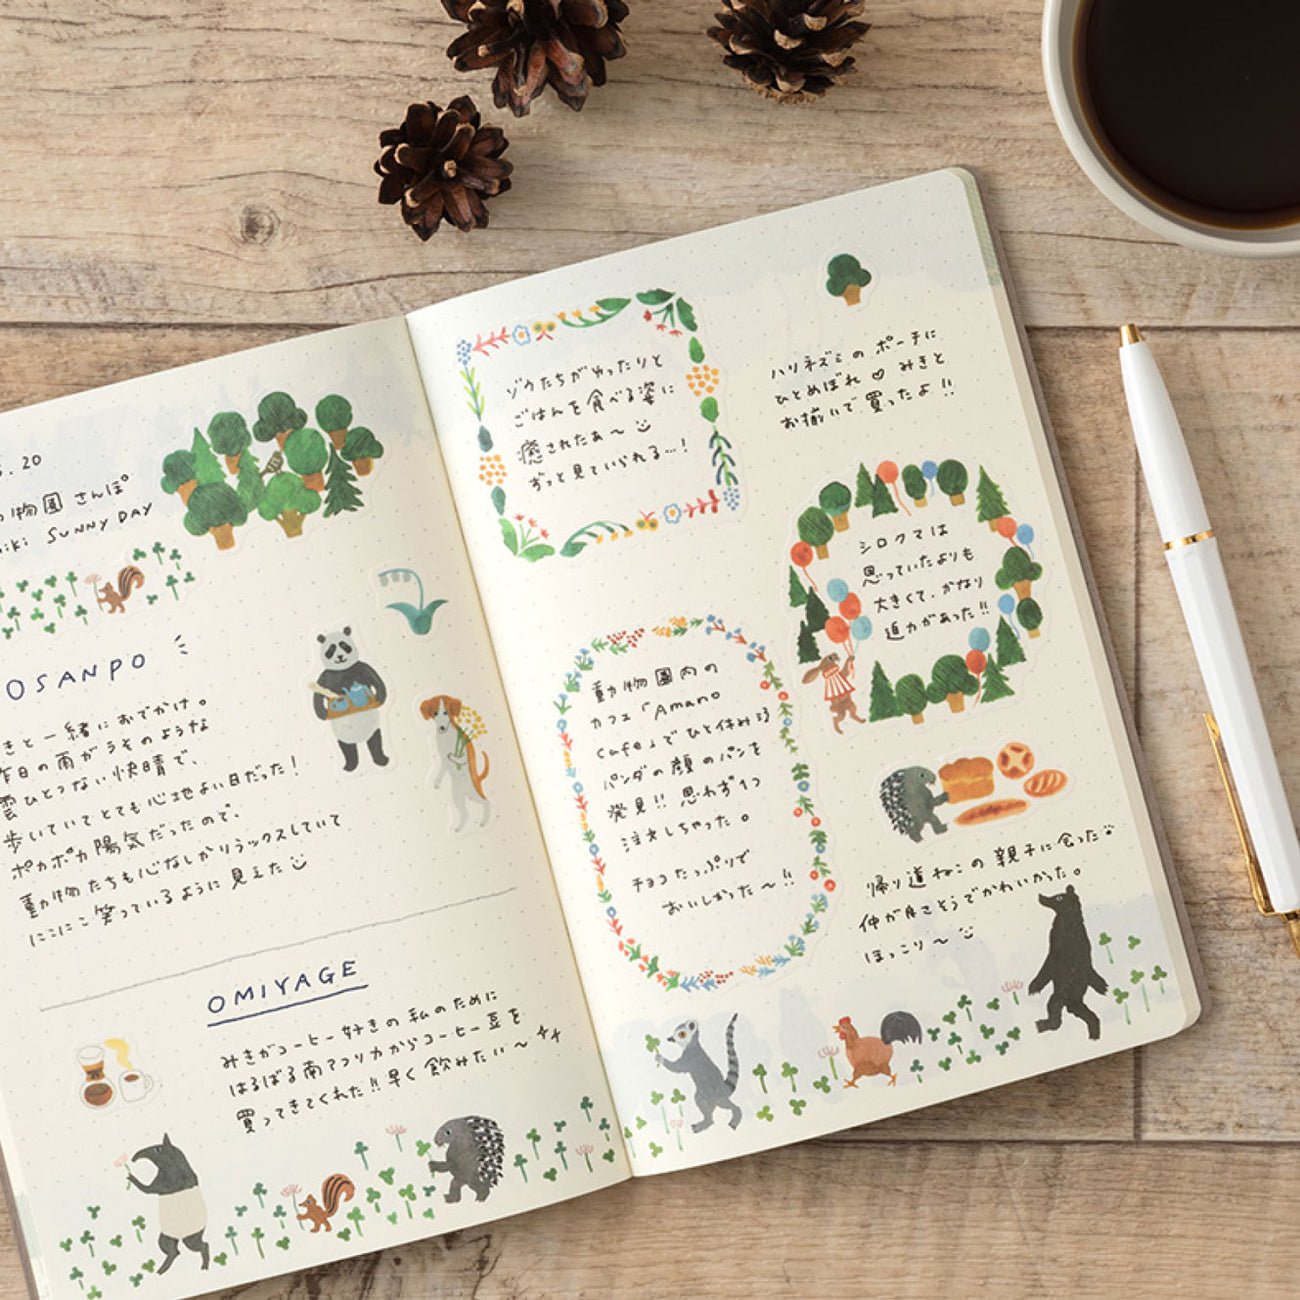 . 20
物園 さんぽ
iki SUNNY DAY
OSANPO
きと一緒におでかけ。
昨日の雨がうそのような
雲ひとつない快晴で、
歩いていてとても心地よい日だった!
ポカポカ陽気だったので、
動物たちも心なしかリラックスしていて
にこにこ笑っているように見えた
OMIYAGE
みきがコーヒー好きの私のために
はるばる南アフリカからコーヒー豆を
買ってきてくれた!!早く飲みたい〜
ゾウたちがゆったりと
ごはんを食べる姿に
癒されたぁ〜
ずっと見ていられる…!
ハリネズミのポーチに
ひとめぼれ♡みきと
お揃いで買ったよ!!
シロクマは
思っていたよりも
大きくて、かなり
迫力があった!!
動物園内の
カフェ「Amano
cafe」でひと休み
パンダの顔のパンを
発見!!思わず1つ
注文しちゃった。
チョコたっぷりで
おいしかった〜!!
帰り道ねこの親子に会った
仲が良さそうでかわいかった。
ほっこり〜